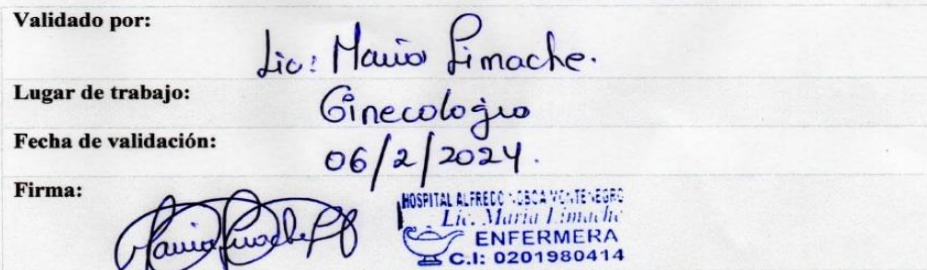 Validado por:
Lic: Maria Limache.
Lugar de trabajo:
Ginecología
Fecha de validación:
06/2/2024.
Firma:
HOSPITAL ALFREDO NOBOA MONTENEGRO
Lic. Maria Limache
ENFERMERA
C.I: 0201980414